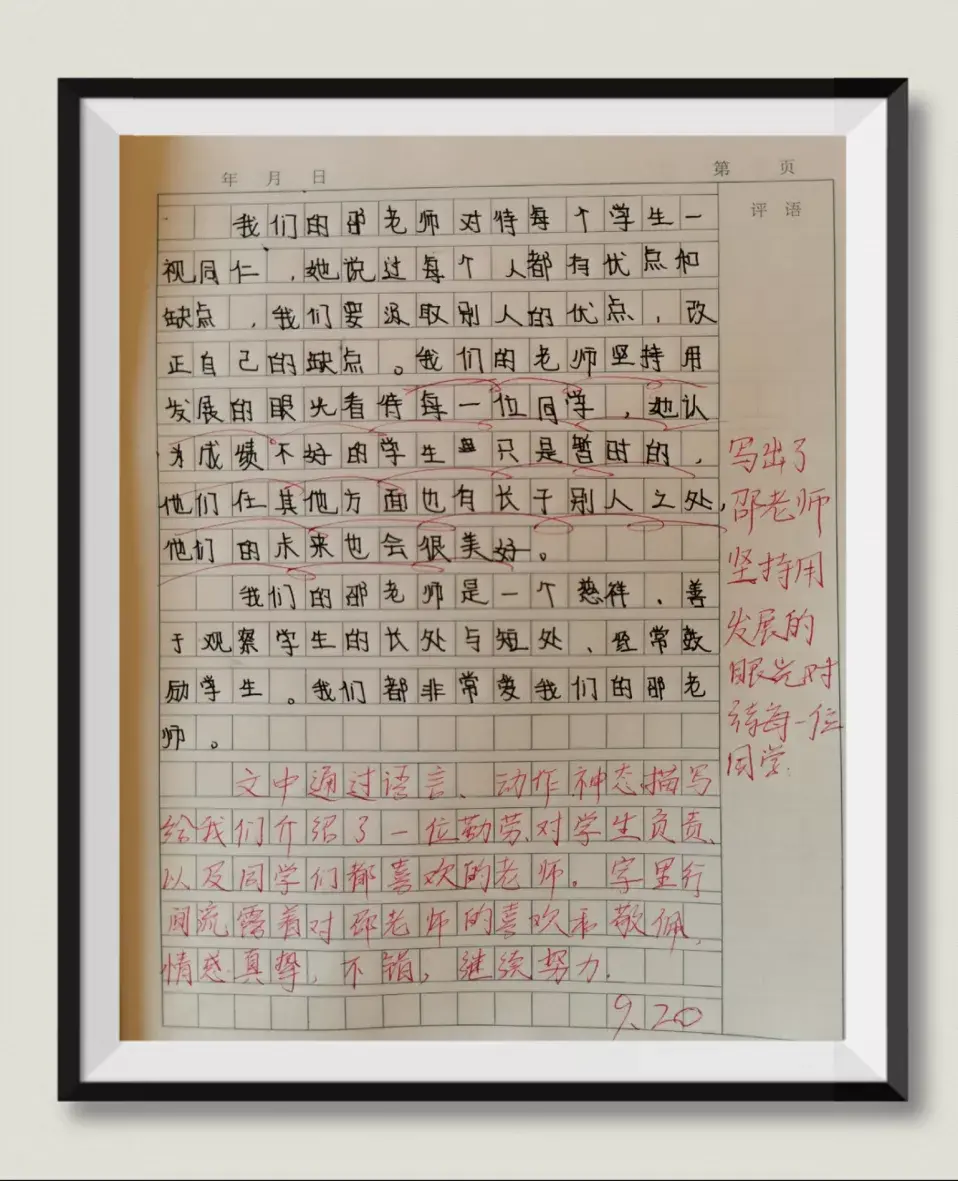 年 月 日
第 页
评语
我们的邵老师对待每个学生一
视同仁，她说过每个人都有优点和
缺点，我们要汲取别人的优点，改
正自己的缺点。我们的老师坚持用
发展的眼光看待每一位同学，她认
为成绩不好的学生只是暂时的，
他们在其他方面也有长于别人之处，
他们的未来也会很美好。
我们的邵老师是一个慈祥、善
于观察学生的长处与短处、经常鼓
励学生。我们都非常爱我们的邵老
师。
文中通过语言、动作神态描写
给我们介绍了一位勤劳、对学生负责、
以及同学们都喜欢的老师。字里行
间流露着对邵老师的喜欢和敬佩，
情感真挚，不错，继续努力.
9.20
写出了
邵老师
坚持用
发展的
眼光对
待每一位
同学.